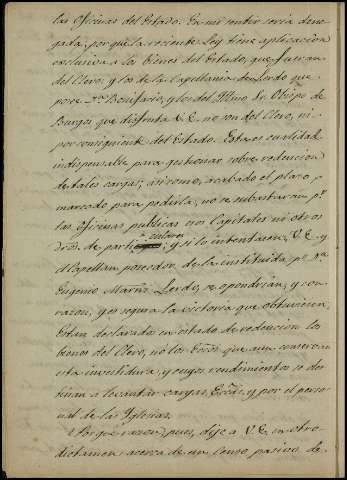 las Oficinas del Estado. En mi sentir seria dene-
gada; porque la reciente Ley tiene aplicacion
exclusiva a los bienes del Estado, que fueron
del Clero; y los de la Capellania de Lerdo que
posee Dn. Bonifacio, y los del Illmo Sr Obispo de
Burgos que disfruta V.E. no son del Clero, ni
por consiguiente del Estado. Esta es cualidad
indispensable para gestionar sobre redencion
de tales cargas; asi como, acabado el plazo
marcado para pedirla, no se subastaran pr.
las oficinas publicas esos Capitales ni otros
dros. de particulares; y si lo intentasen, V.E. y
el Capellan poseedor de la instituida pr. Dn.
Eugenio Martin Lerdo, se opondrian, y con
razon; y es segura la victoria que obtuviesen.
Estan declarados en estado de redencion los
bienes del Clero, nó los Eccos. que aun conservan
esta investidura, y cuyos rendimientos se des-
tinan a levantar cargas Eccas. y por el perso-
nal de las Iglesias.
¿Por qué razon, pues, dije a V.E. en otro
dictamen acerca de un Censo pasivo de